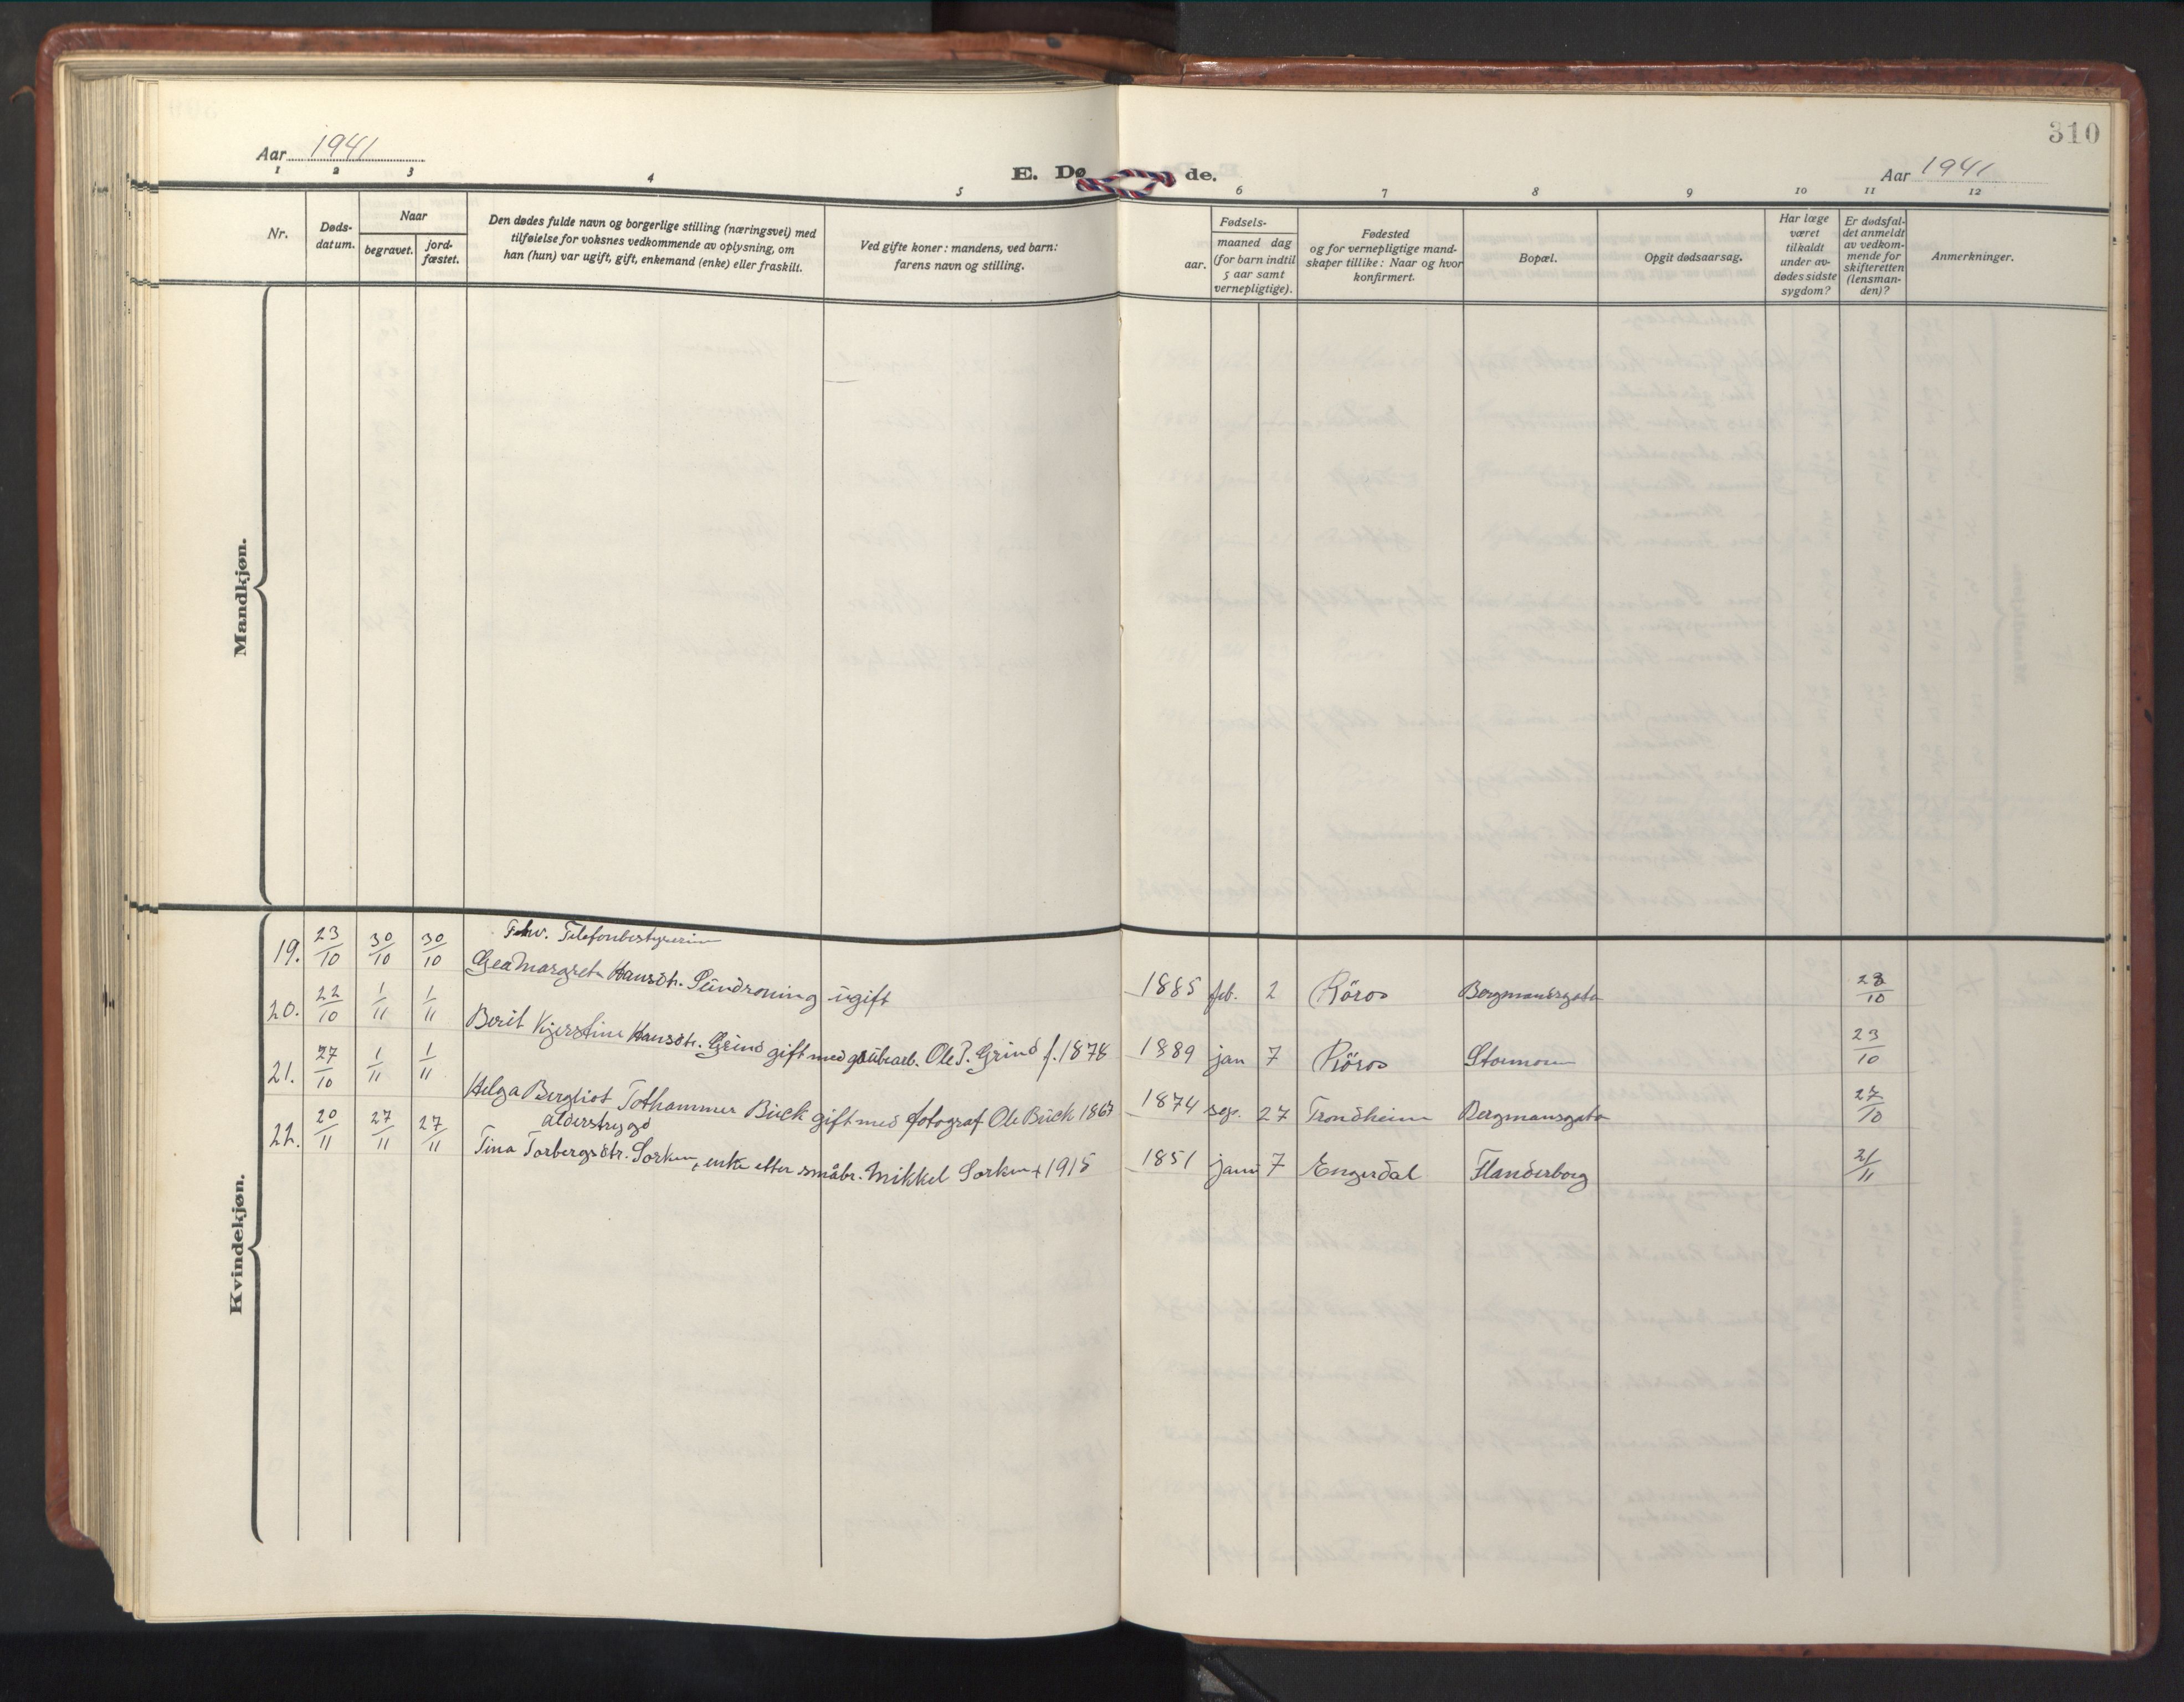 310
Aar 1941
E. Dø de.
Aar 1941
1 2 3 4 5 6 7 8 9 10 11 12
Nr.
Døds-
datum.
Naar
begravet.
jord-
fæstet.
Den dødes fulde navn og borgerlige stilling (næringsvei) med
tilføielse for voksnes vedkommende av oplysning, om
han (hun) var ugift, gift, enkemand (enke) eller fraskilt.
Ved gifte koner: mandens, ved barn:
farens navn og stilling.
Fødsels-
aar.
maaned dag
(for barn indtil
5 aar samt
vernepligtige).
Fødested
og for vernepligtige mand-
skaper tillike: Naar og hvor
konfirmert.
Bopæl.
Opgit dødsaarsag.
Har læge
været
tilkaldt
under av-
dødes sidste
sygdom?
Er dødsfal-
det anmeldt
av vedkom-
mende for
skifteretten
(lensman-
den)?
Anmerkninger.
Mandkjøn.
Kvindekjøn.
Fhv. Telefonbestyrerin
19. 23/10 30/10 30/10 Gea Margrete Hansdtr. Sundroning ugift 1885 feb. 2 Röros Bergmansgata 28/10
20. 22/10 1/11 1/11 Berit Kjerstine Hansdtr. Grind gift med grubearb. Ole P. Grind f. 1878 1889 jan 7 Röros Stormoen 23/10
21. 27/10 1/11 1/11 Helga Bergliot Tothammer Buck gift med fotograf Ole Buck 1867 1874 sep. 27 Trondheim Bergmansgata 27/10
alderstrygd
22. 20/11 27/11 27/11 Tina Torbergsdtr. Sorken, enke etter småbr. Mikkel Sorken + 1915 1851 janu 7 Engerdal Flanderborg 21/11